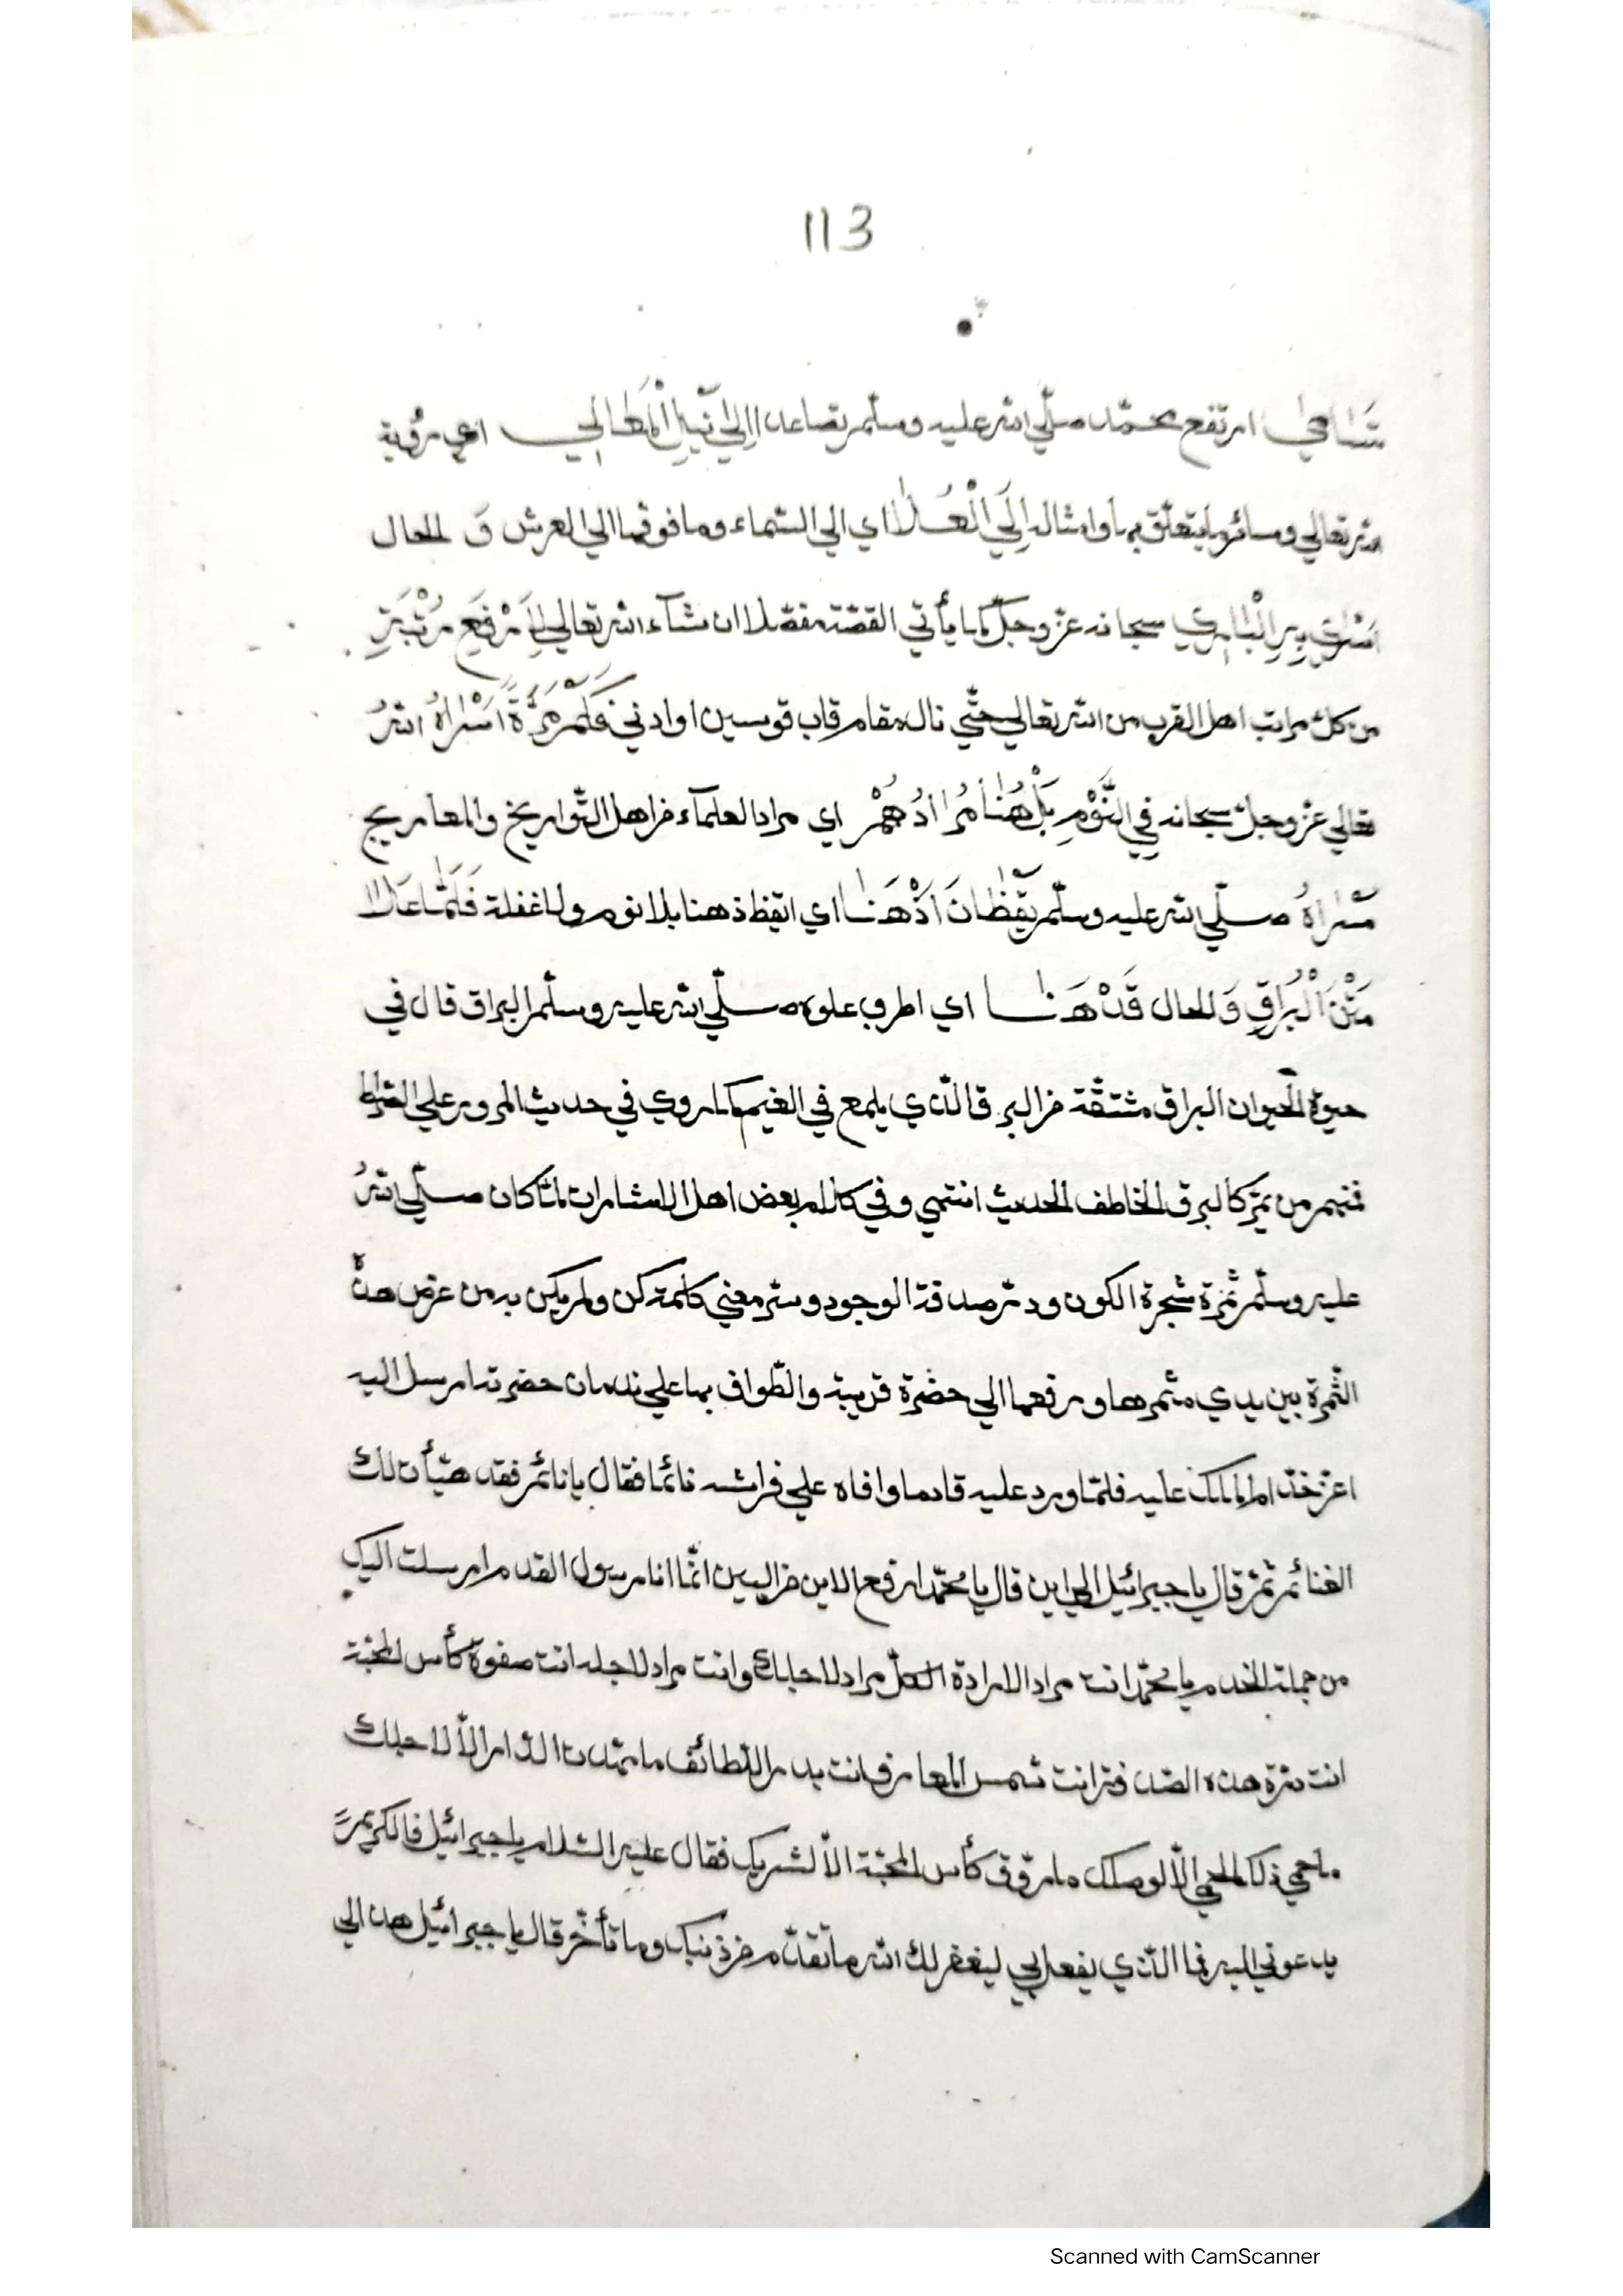 113
تسامى ارتفع محمّد صلّي الله عليه وسلّم تصاعدا اِلىٰ نَيْلِ الْمَطَالِبِ اعني رؤية
الله تعالي وسائر ما يتعلّق بها وامثاله اِلَي الْعُلَا اي الي السّماء وما فوقها الي العرش وَ الحال
اَسْرٰي بِهِ الْبَارِي سبحانه عزّ وجلّ كما يأتي القصّة مفصّلا ان شآء الله تعالي لِاَرْفَعِ مَرْتَبَةِ
من كلّ مراتب اهل القرب من الله تعالي حتّي ناله مقام قاب قوسين او ادني فَكَمْ مَرَّةً اَسْرَاهُ اللهُ
تعالي عزّ وجلّ سبحانه فِي النَّوْمِ بَلْ هُنَا مُرَادُهُمْ اي مراد العلمآء من اهل التّواريخ والمعاريج
مَسْرَاهُ صلّي الله عليه وسلّم يَقْظَانَ اَذْهَنَا اي ايقظ ذهنا بلا نوم ولا غفلة فَلَمَّا عَلَا
مَتْنَ الْبُرَاقِ وَ الحال قَدْ هَنَا اي اطرب علوه صلّي الله عليه وسلّم البراق قال في
حيوة الحيوان البراق مشتقّة من البرق الّذي يلمع في الغيم كما روي في حديث المرور علي الصّراط
فمنهم من يمرّ كالبرق الخاطف الحديث انتهي وفي كلام بعض اهل الاشارات لمّا كان صلّي اللهُ
عليه وسلّم ثمرة شجرة الكون ودرّ صدفة الوجود وسرّ معني كلمة كن ولم يكن بد من عرض هذه
الثّمرة بين يدي مثمرها ورفعها الي حضرة قريبة والطّواف بها علي ندمان حضرته ارسل اليه
اعزّ خدّام الملك عليه فلمّا ورد عليه قادما وافاه علي فراشه نائما فقال يا نائم فقد هيّأت لك
الغنائم ثمّ قال يا جبرائيل الي اين قال يا محمّد ارفع الاين من البين انّما انا رسول القدم ارسلت اليك
من جملة الخدم يا محمّد انت مراد الارادة الكلّ مراد لاجلك وانت مراد لاجله انت صفوة كأس المحبّة
انت درّة هذه الصّدفة انت شمس المعارف انت بدر اللّطائف ما مهّدت الدّار الّا لاجلك
ما حمي ذلك الحمي الّا لوصلك ما روّق كأس المحبّة الّا لشربك فقال عليه السّلام يا جبرائيل فالكريم
يدعوني اليه فما الّذي يفعل بي ليغفر لك الله ما تقدّم من ذنبك وما تأخّر قال يا جبرائيل هذا لي
Scanned with CamScanner